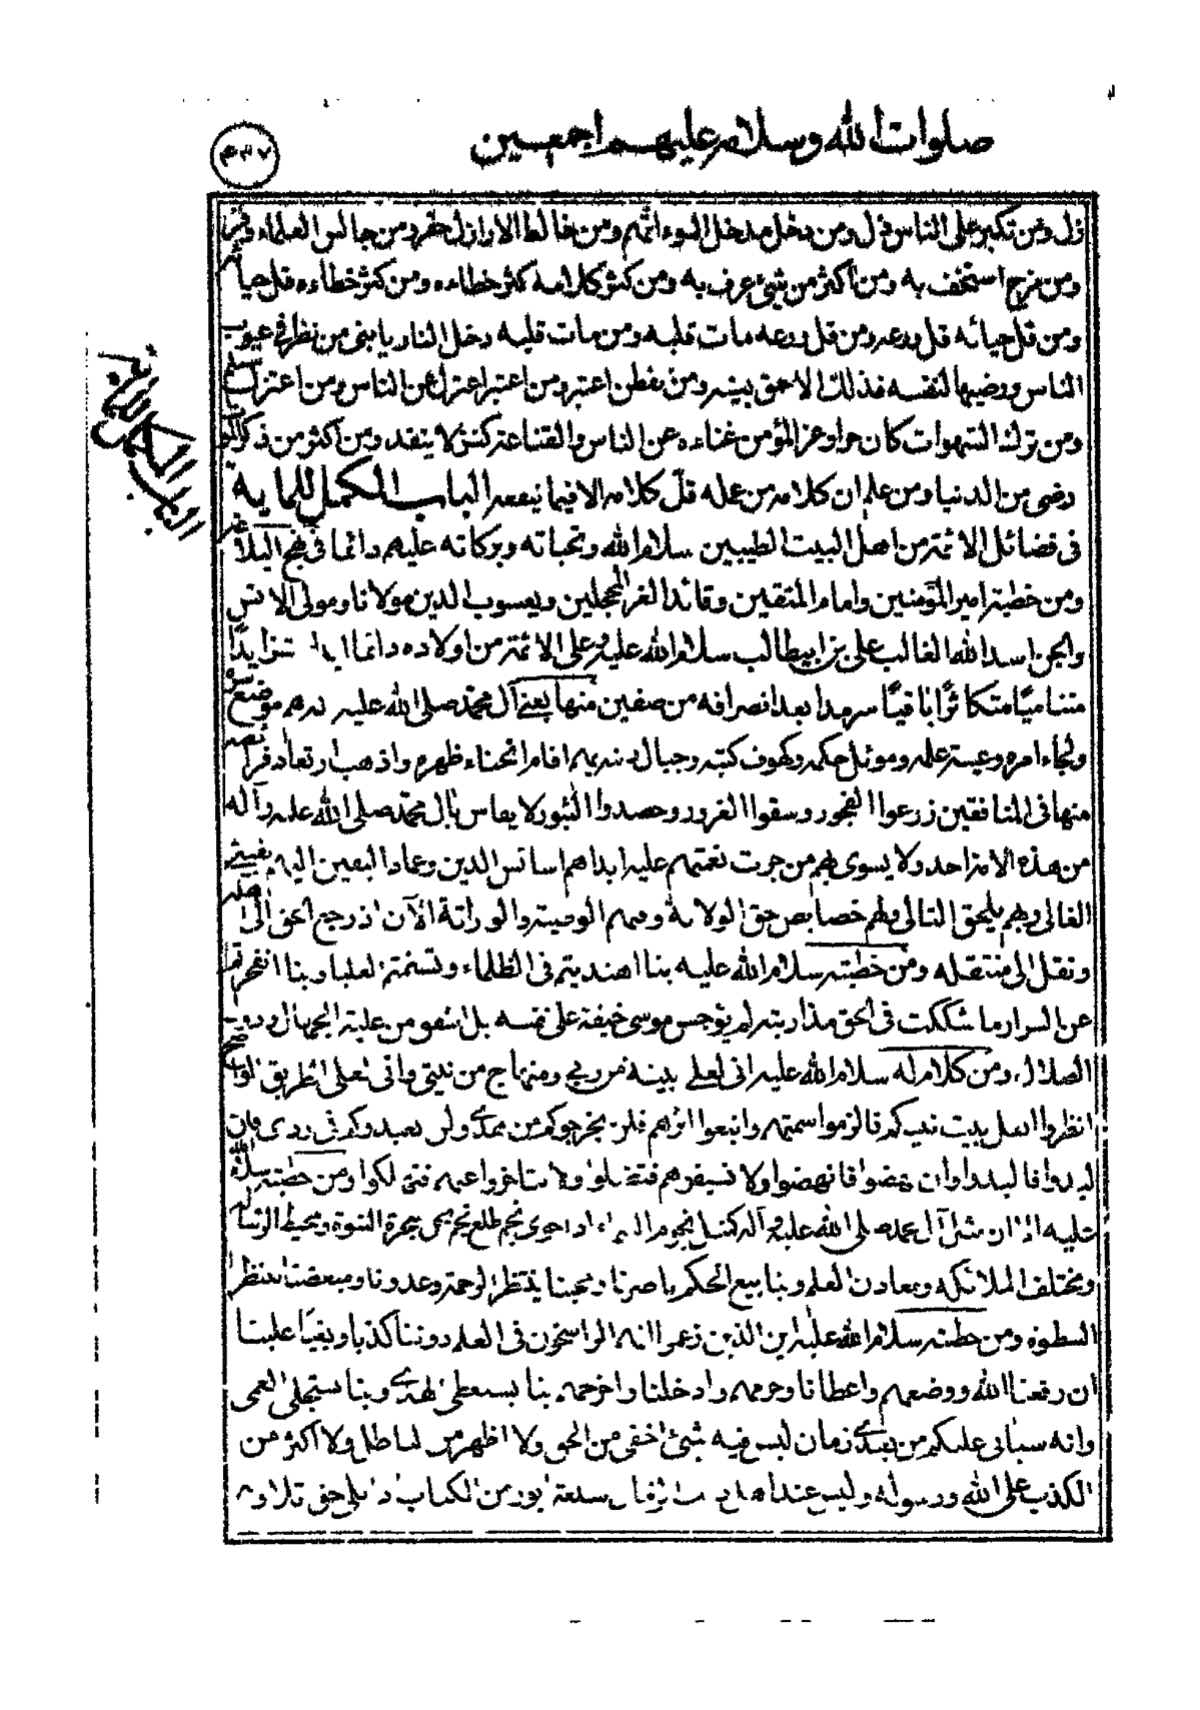 صلوات الله وسلامه عليهم اجمعين
زل ومن تكبر على الناس ذل ومن دخل مدخل السوء اتهم ومن خالط الاراذل حقر ومن جالس العلماء وقر
ومن مزح استخف به ومن اكثر من شيئ عرف به ومن كثر كلامه كثر خطاءه ومن كثر خطاءه قل حياءه
ومن قل حيائه قل ورعه ومن قل ورعه مات قلبه ومن مات قلبه دخل النار يا بنى من نظر فى عيوب
الناس ورضيها لنفسه فذلك الاحمق بعينه ومن تفطن اعتبر ومن اعتبر اعتزل عن الناس ومن اعتزل سلم
ومن ترك الشهوات كان حرا وعز المؤمن غناءه عن الناس والقناعة كنز لا ينفد ومن اكثر من ذكر الموت
رضى من الدنيا ومن علم ان كلامه من عمله قلّ كلامه الا فيما ينفعه الباب المكمل للماية
فى فضائل الائمة من اهل البيت الطيبين سلام الله وتحياته وبركاته عليهم دائما فى نهج البلاغة
ومن خطبة امير المؤمنين وامام المتقين وقائد الغر المحجلين ويعسوب الدين مولانا ومولى الانس
والجن اسد الله الغالب على بن ابيطالب سلام الله عليه وعلى الائمة من اولاده دائما ابدا متزايدًا
متناميًا متكاثرًا باقيًا سرمدا بعد انصرافه من صفين منها يعنى آل محمد صلى الله عليه هم موضع سره
ولجاء امره وعيبة علمه وموئل حكمه وكهوف كتبه وجبال دينه بهم اقام انحناء ظهره واذهب ارتعاد فرائصه
منها فى المنافقين زرعوا الفجور وسقوا الغرور وحصدوا الثبور لا يقاس بآل محمد صلى الله عليه وآله
من هذه الامة احد ولا يسوى بهم من جرت نعمتهم عليه ابدا هم اساس الدين وعماد اليقين اليهم يفيئ
الغالى وبهم يلحق التالى ولهم خصايص حق الولاية وفيهم الوصية والوراثة الآن اذ رجع الحق الى اهله
ونقل الى منتقله ومن خطبته سلام الله عليه بنا اهتديتم فى الظلماء وتسنمتم العليا وبنا انفجرتم
عن السرار ما شككت فى الحق مذ اريته لم يوجس موسى خيفة على نفسه بل اشفق من غلبة الجهال ودول
الضلال ومن كلام له سلام الله عليه انى لعلى بينة من ربى ومنهاج من نبيى وانى لعلى الطريق الواضح
انظروا اهل بيت نبيكم فالزموا سمتهم واتبعوا اثرهم فلن يخرجوكم من هدى ولن يعيدوكم فى ردى فان
لبدوا فالبدوا وان نهضوا فانهضوا ولا تسبقوهم فتضلوا ولا تتاخروا عنهم فتهلكوا ومن خطبته سلام الله
عليه الا ان مثل آل محمد صلى الله عليه وآله كمثل نجوم السماء اذا هوى نجم طلع نجم نحن شجرة النبوة ومحط الرسالة
ومختلف الملائكة ومعادن العلم وينابيع الحكم ناصرنا ومحبنا ينتظر الرحمة وعدونا ومبغضنا ينتظر
السطوة ومن خطبته سلام الله عليه اين الذين زعموا انهم الراسخون فى العلم دوننا كذبا وبغيًا علينا
ان رفعنا الله ووضعهم واعطانا وحرمهم وادخلنا واخرجهم بنا يستعطى الهدى وبنا يستجلى العمى
وانه سياتى عليكم من بعدى زمان ليس فيه شيئ اخفى من الحق ولا اظهر من الباطل ولا اكثر من
الكذب على الله ورسوله وليس عند اهل سلعة ابور من الكتاب اذا تلى حق تلاوته